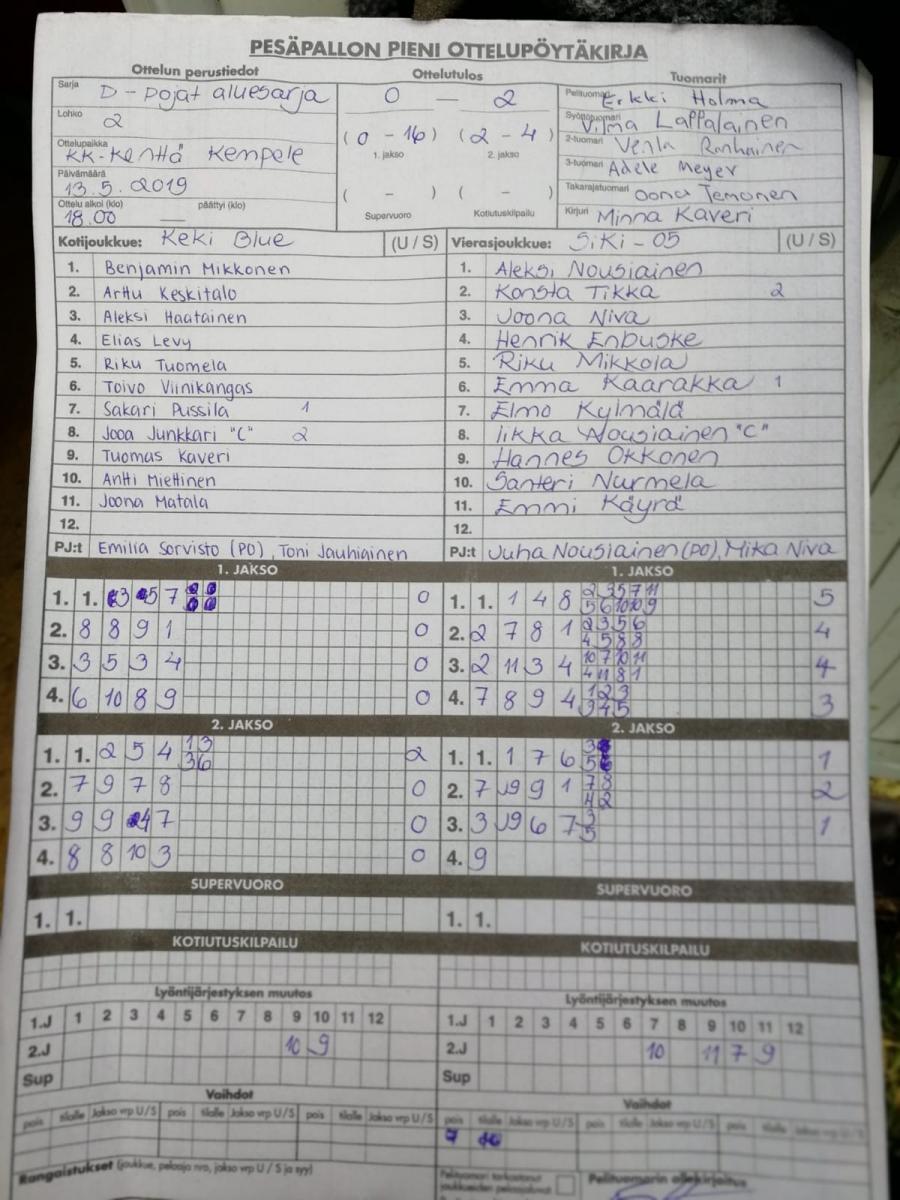 PESÄPALLON PIENI OTTELUPÖYTÄKIRJA
Ottelun perustiedot Ottelutulos Tuomarit
Sarja D-pojat aluesarja
Lohko 2
Ottelupaikka KK-Kenttä Kempele
Päivämäärä 13.5.2019
Ottelu alkoi (klo) 18.00 päättyi (klo) —
0 — 2
(0 - 16) (2 - 4)
1. jakso 2. jakso
( - ) ( - )
Supervuoro Kotiutuskilpailu
Pelituomari Erkki Holma
Syöttötuomari Vilma Lappalainen
2-tuomari Venla
3-tuomari Adele Meyer
Takarajatuomari Oona
Kirjuri Minna Kaveri
Kotijoukkue: Keki Blue (U / S) Vierasjoukkue: SiKi - 05 (U / S)
1. Benjamin Mikkonen 1. Aleksi Nousiainen
2. Arttu Keskitalo 2. Konsta Tikka 2
3. Aleksi Haatainen 3. Joona Niva
4. Elias Levy 4. Henrik Enbuske
5. Riku Tuomela 5. Riku Mikkola
6. Toivo Viinikangas 6. Emma Kaarakka 1
7. Sakari Pussila 1 7. Elmo Kylmälä
8. Jooa Junkkari "C" 2 8. Iikka Nousiainen "C"
9. Tuomas Kaveri 9. Hannes Okkonen
10. Antti Miettinen 10. Santeri Nurmela
11. Joona Matala 11. Emmi Käyrä
12. 12.
PJ:t Emilia Sorvisto (PO), Toni Jauhiainen PJ:t Juha Nousiainen (PO), Mika Niva
1. JAKSO 1. JAKSO
1. 1. 3 5 7 0 1. 1. 1 4 8 2 3 5 7 11 5
5 6 10 10 9
2. 8 8 9 1 0 2. 2 7 8 1 2 3 5 6 4
4 5 8 8
3. 3 5 3 4 0 3. 2 11 3 4 10 7 10 11 4
4 11 8 1
4. 6 10 8 9 0 4. 7 8 9 4 1 2 3 3
3 4 5
2. JAKSO 2. JAKSO
1. 1. 2 5 4 1 3 2 1. 1. 1 7 6 3 1
3 6 5
2. 7 9 7 8 0 2. 7 9 9 1 7 8 2
4 2
3. 9 9 4 7 0 3. 3 9 6 7 3 1
5
4. 8 8 10 3 0 4. 9
SUPERVUORO SUPERVUORO
1. 1. 1. 1.
KOTIUTUSKILPAILU KOTIUTUSKILPAILU
Lyöntijärjestyksen muutos Lyöntijärjestyksen muutos
1.J 1 2 3 4 5 6 7 8 9 10 11 12 1.J 1 2 3 4 5 6 7 8 9 10 11 12
2.J 10 9 2.J 10 11 7 9
Sup Sup
Vaihdot Vaihdot
pois tilalle Jakso vrp U / S pois tilalle Jakso vrp U / S pois tilalle Jakso vrp U / S pois tilalle Jakso vrp U / S
Rangaistukset (joukkue, pelaaja nro, jakso vrp U / S ja syy)
Pelituomarin allekirjoitus